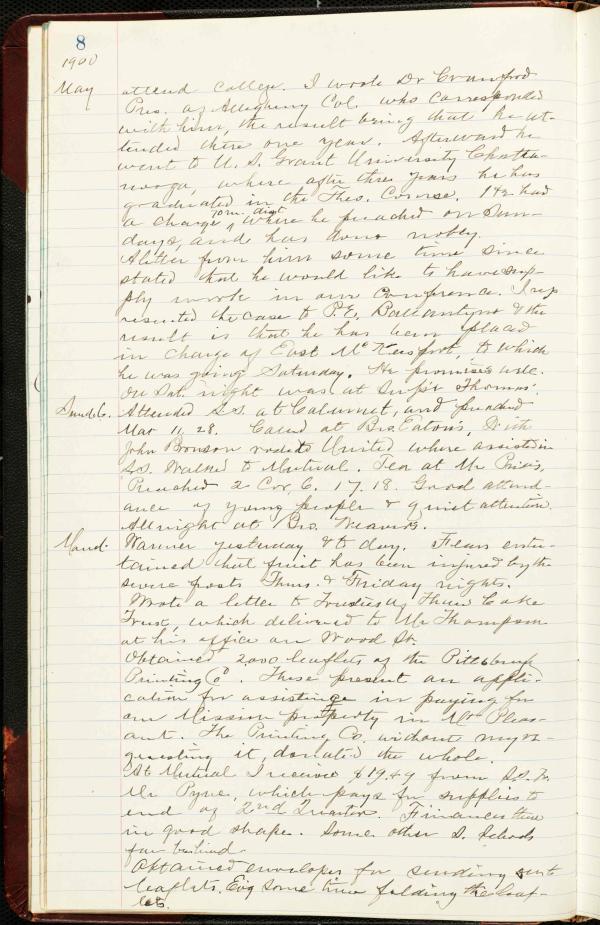 8
1900
May attend college. I wrote Dr Crawford
Pres. of Allegheny Col. who corresponded
with him, the result being that he at-
tended there one year. Afterward he
went to U. S. Grant University Chatta-
nooga, where after three years he has
graduated in the Theo. Course. He had
a charge 70 mi. dist where he preached on Sun-
days, and has done nobly.
A letter from him some time since
stated that he would like to have sup-
ply work in our Conference. I rep
resented the case to P.E. Ballantyne & the
result is that he has been placed
in charge of East McKeesport, to which
he was going Saturday. He promises well.
On Sat. night was at Sup't Thomas'.
Sund. 6. Attended S.S. at Calumet, and preached
Mar 11, 28. Called at Bro. Eaton's, With
John Bronson rode to United where assisted in
S.S. Walked to Mutual. Tea at Mr Price's,
Preached 2 Cor, 6. 17. 18. Good attend-
ance of young people & quiet attention.
All night at Bro. Weaver's.
Mond. Warmer yesterday & to day. Fears enter-
tained that fruit has been injured by the
severe frosts Thurs. & Friday nights.
Wrote a letter to Trustees of Thaw Coke
Trust, which delivered to Mr Thompson
at his office on Wood St.
Obtained 2000 leaflets of the Pittsburgh
Printing Co. These present an appli-
cation for assistance in paying for
our Mission property in Mt Pleas-
ant. The Printing Co. without my re-
questing it, donated the whole.
At Mutual I received $19.49 from S.S. Tr.
Mr Pyne, which pays for supplies to
end of 2nd Quarter. Finances there
in good shape. Some other S. Schools
far behind.
Obtained envelopes for sending out
leaflets. Eve some time folding the leaf-
lets.